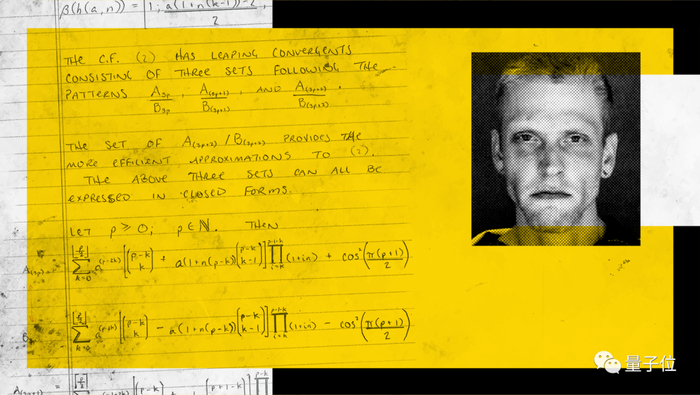 β(h(a,n)) = [1; a(1+n(k-1))-2,
2
THE C.F. (2) HAS LEAPING CONVERGENTS
CONSISTING OF THREE SETS FOLLOWING THE
PATTERNS A_{3p}/B_{3p}, A_{(3p+1)}/B_{(3p+1)}, AND A_{(3p+2)}/B_{(3p+2)}.
THE SET OF A_{(3p+2)}/B_{(3p+2)} PROVIDES THE
MORE EFFICIENT APPROXIMATIONS TO (2).
THE ABOVE THREE SETS CAN ALL BE
EXPRESSED IN CLOSED FORMS.
LET p ≥ 0, p ∈ ℕ. THEN
[(p-k k) + a(1+n(p-k))(p-k k-1)] ∏ (1+in) + cos²(π(p+1)/2)
[(p-k k) - a(1+n(p-k))(p-k k-1)] ∏ (1+in) - cos²(π(p+1)/2)
量子位